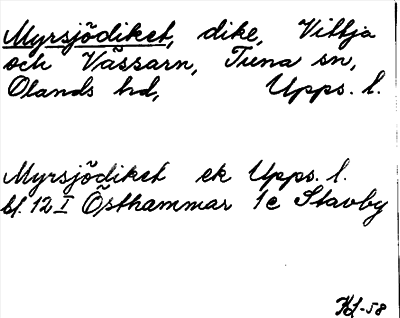 Myrsjödiket, dike, Vittja
och Vässarn, Tuna sn,
Olands hd, Upps. l.
Myrsjödiket ek Upps. l.
bl. 12 I Östhammar 1e Stavby
KL-58